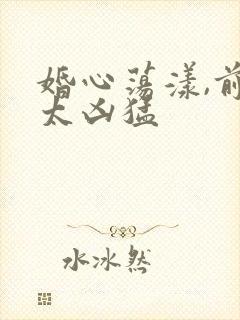 婚心荡漾,前
太凶猛
水冰然